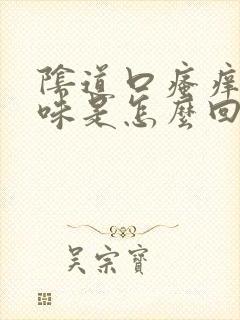 陰道口瘙癢
味是怎麼回
吴宗寶